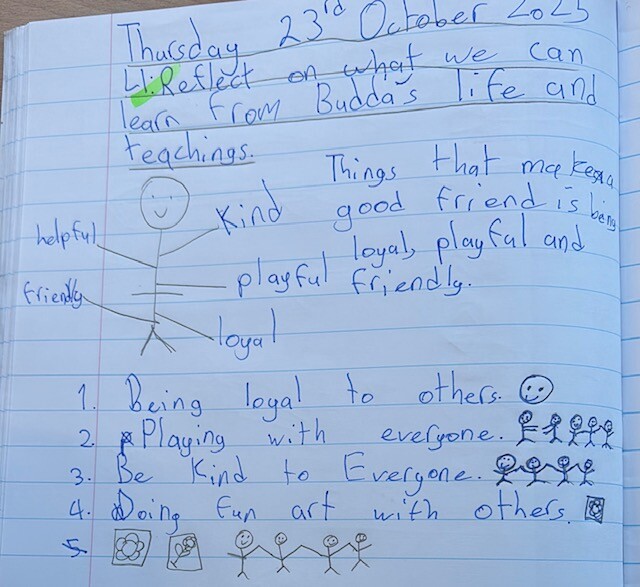 Thursday 23rd October 2025
LI: Reflect on what we can
learn from Budda's life and
teachings.
Things that makes a
good friend is being
loyal, playful and
friendly.
helpful
kind
friendly
playful
loyal
1. Being loyal to others.
2. Playing with everyone.
3. Be Kind to Everyone.
4. Doing fun art with others.
5